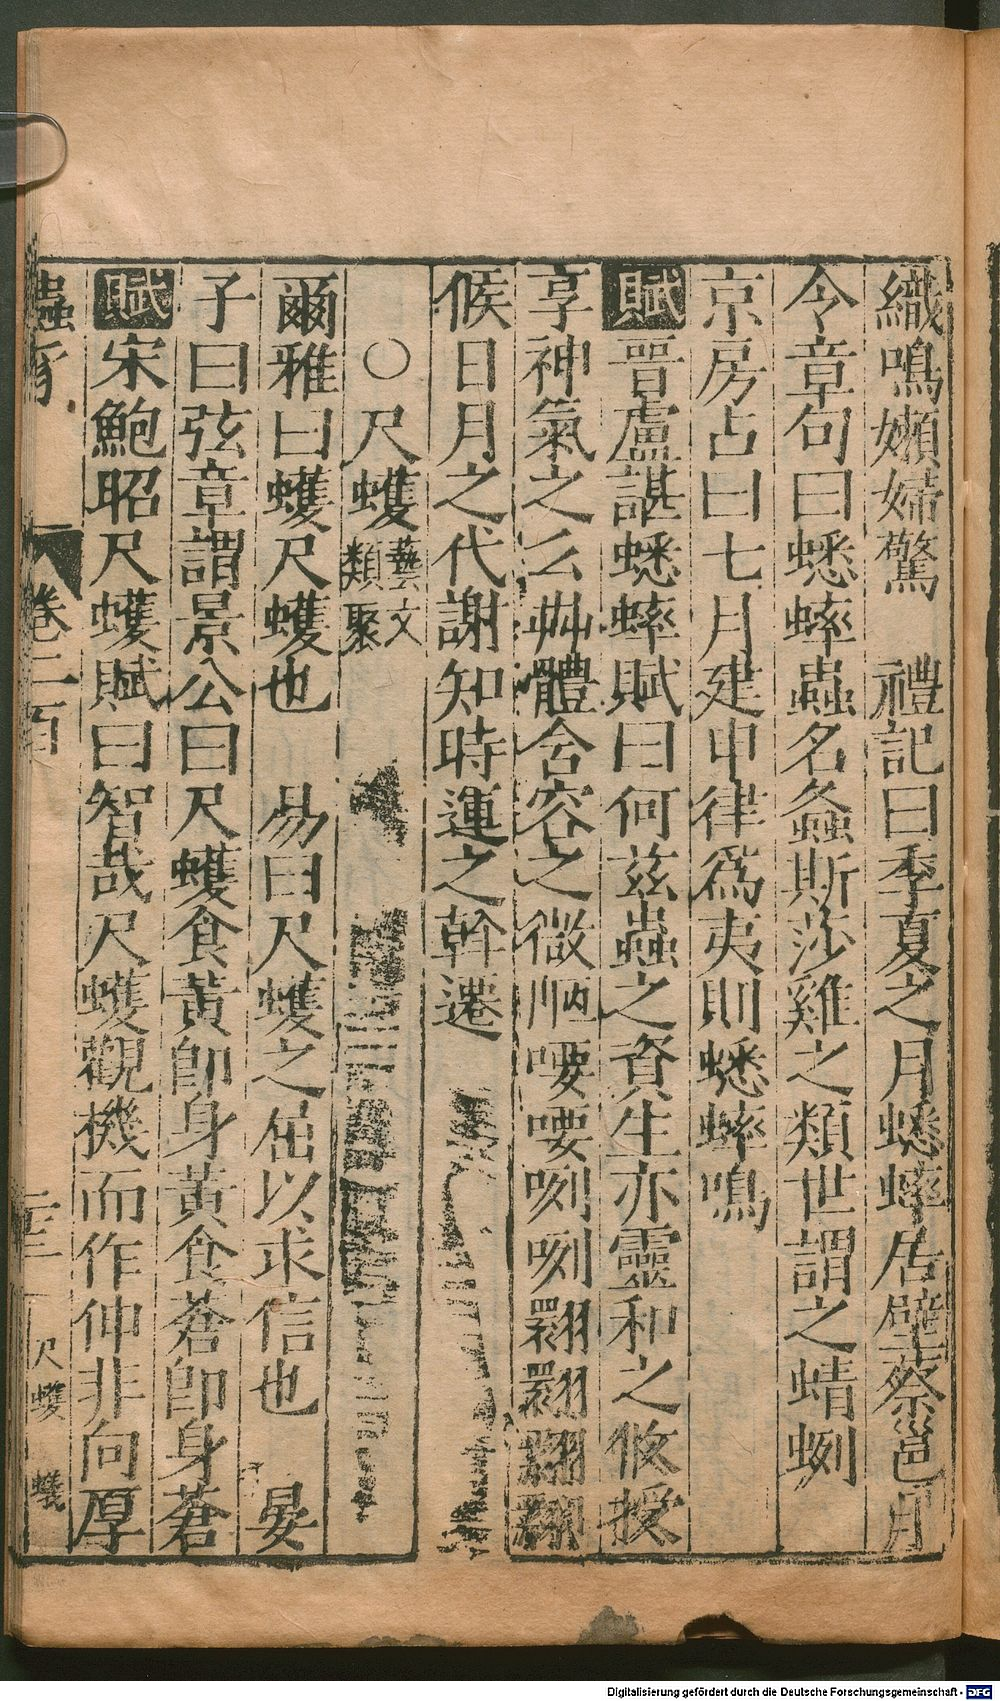 織鳴嬾婦驚　禮記曰季夏之月蟋蟀居壁蔡邕月
令章句曰蟋蟀蟲名螽斯莎雞之類世謂之蜻蛚
京房占曰七月建申律爲夷則蟋蟀鳴
賦晉盧諶蟋蟀賦曰何茲蟲之資生亦靈和之攸授
享神氣之么艸體含容之微陋喓喓咧咧翾翾翾翾
候日月之代謝知時運之斡遷
〇尺蠖藝文類聚
爾雅曰蠖尺蠖也　易曰尺蠖之屈以求信也　晏
子曰弦章謂景公曰尺蠖食黃卽身黃食蒼卽身蒼
賦宋鮑昭尺蠖賦曰智哉尺蠖觀機而作伸非向厚
蟲豸　卷二百　尺蠖　蟻
Digitalisierung gefördert durch die Deutsche Forschungsgemeinschaft - DFG